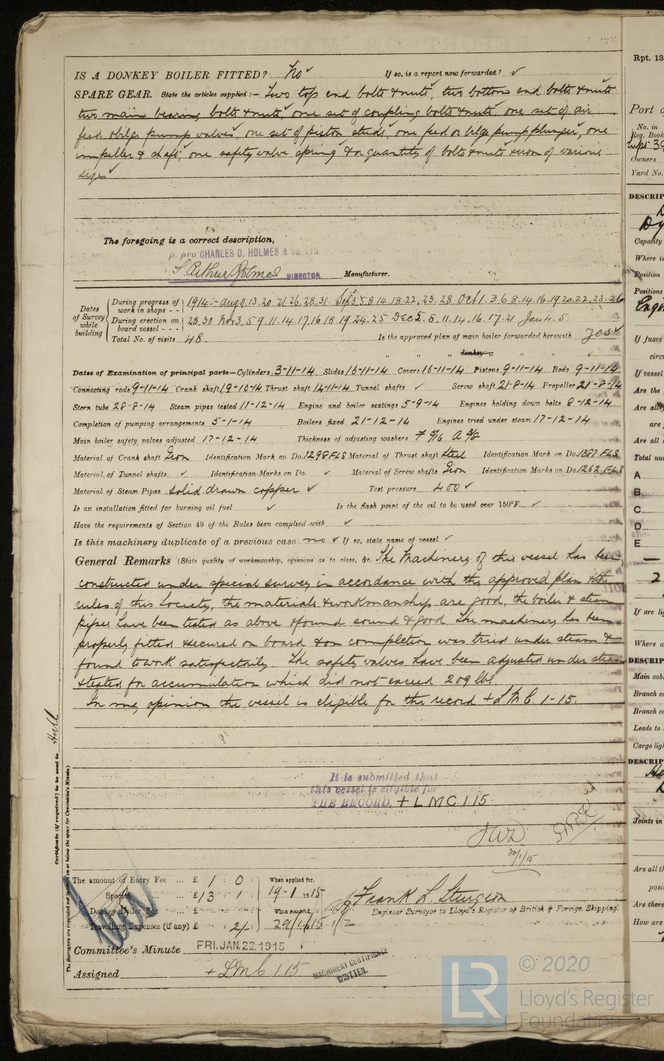 IS A DONKEY BOILER FITTED? No ✓ If so, is a report now forwarded? ✓
SPARE GEAR. State the articles supplied:— Two top end bolts & nuts, two bottom end bolts & nuts
two main bearing bolts & nuts, one set of coupling bolts & nuts, one set of air
feed & bilge pump valves, one set of piston studs, one feed & bilge pump plunger, one
impeller & shaft, one safety valve spring & a quantity of bolts & nuts & iron of various
sizes ✓
The foregoing is a correct description,
p. pro CHARLES D. HOLMES & CO. LTD.
Arthur Holmes DIRECTOR Manufacturer.
Dates of Survey while building
During progress of work in shops - - 1914:- Aug 11. 13. 20. 21. 26. 28. 31. Sep 3. 5. 8. 14. 18. 22, 23. 28 Oct 1. 3. 6. 8. 14. 16. 19. 20. 22. 23. 26
During erection on board vessel - - - 28. 30. Nov 3. 5. 9. 11. 14. 17. 16. 18. 19. 24. 25 Dec 5. 8. 11. 14. 16. 17. 21 Jan 4. 5.
Total No. of visits 48. Is the approved plan of main boiler forwarded herewith Yes ✓
" " " donkey " "
Dates of Examination of principal parts—Cylinders 3-11-14 Slides 16-11-14 Covers 16-11-14 Pistons 9-11-14 Rods 9-11-14
Connecting rods 9-11-14 Crank shaft 19-10-14 Thrust shaft 14-11-14 Tunnel shafts ✓ Screw shaft 21-8-14 Propeller 21-8-14
Stern tube 28-8-14 Steam pipes tested 11-12-14 Engine and boiler seatings 5-9-14 Engines holding down bolts 8-12-14
Completion of pumping arrangements 5-1-14 Boilers fixed 21-12-14 Engines tried under steam 17-12-14
Main boiler safety valves adjusted 17-12-14 Thickness of adjusting washers
Material of Crank shaft Iron Identification Mark on Do. 1298 FLS Material of Thrust shaft Steel Identification Mark on Do. 1387 FLS
Material of Tunnel shafts ✓ Identification Marks on Do. ✓ Material of Screw shafts Iron Identification Marks on Do. 1262 FLS
Material of Steam Pipes solid drawn copper ✓ Test pressure 400 ✓
Is an installation fitted for burning oil fuel ✓ Is the flash point of the oil to be used over 150°F. ✓
Have the requirements of Section 49 of the Rules been complied with ✓
Is this machinery duplicate of a previous case no ✓ If so, state name of vessel ✓
General Remarks (State quality of workmanship, opinions as to class, &c. The Machinery of this vessel has been
constructed under special survey in accordance with the approved plan & the
rules of this Society, the materials & workmanship are good, the boiler & steam
pipes have been tested as above & found sound & good. The machinery has been
properly fitted & secured on board & on completion was tried under steam &
found to work satisfactorily. The safety valves have been adjusted under steam
& tested for accumulation which did not exceed 209 lbs
In my opinion the vessel is eligible for the record + L.M.C. 1-15.
It is submitted that
this vessel is eligible for
THE RECORD. + LMC 1.15
JWD
Certificate (if required) to be sent to Hull
The amount of Entry Fee .. £ 1 : 0 When applied for,
Special .. £ 13 : 1 19-1-1915
Donkey Boiler Fee .. £ When received,
Travelling Expenses (if any) £ : 2/-
Frank L. Sturgeon
Engineer Surveyor to Lloyd's Register of British & Foreign Shipping.
Committee's Minute FRI. JAN. 22. 1915
Assigned + LMC 1.15
MACHINERY CERTIFICATE
WRITTEN.
Rpt. 13
Port
No. in
Reg. Book
Owners
Yard No.
DESCRIP
Capacity
Where is
Position
Positions
Engin
If fuses
circ
If vessel
Are the
Are all
are
Are all
Total nu
A
B
C
D
E
2
If arc lig
Where a
DESCRIP
Main cab
Branch c
Branch c
Leads to
Cargo lig
DESCRIP
Joints in
Are all th
posi
Are there
How are
LR
© 2020
Lloyd's Register
Foundation